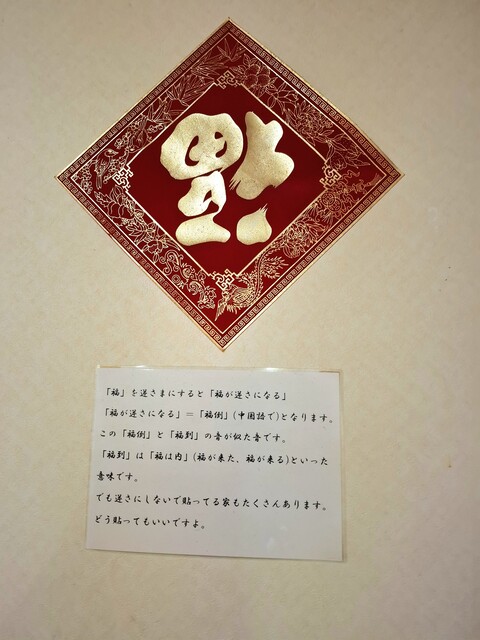 福
「福」を逆さまにすると「福が逆さになる」
「福が逆さになる」＝「福倒」(中国語で)となります。
この「福倒」と「福到」の音が似た音です。
「福到」は「福は内」(福が来た、福が来る)といった
意味です。
でも逆さにしないで貼ってる家もたくさんあります。
どう貼ってもいいですよ。